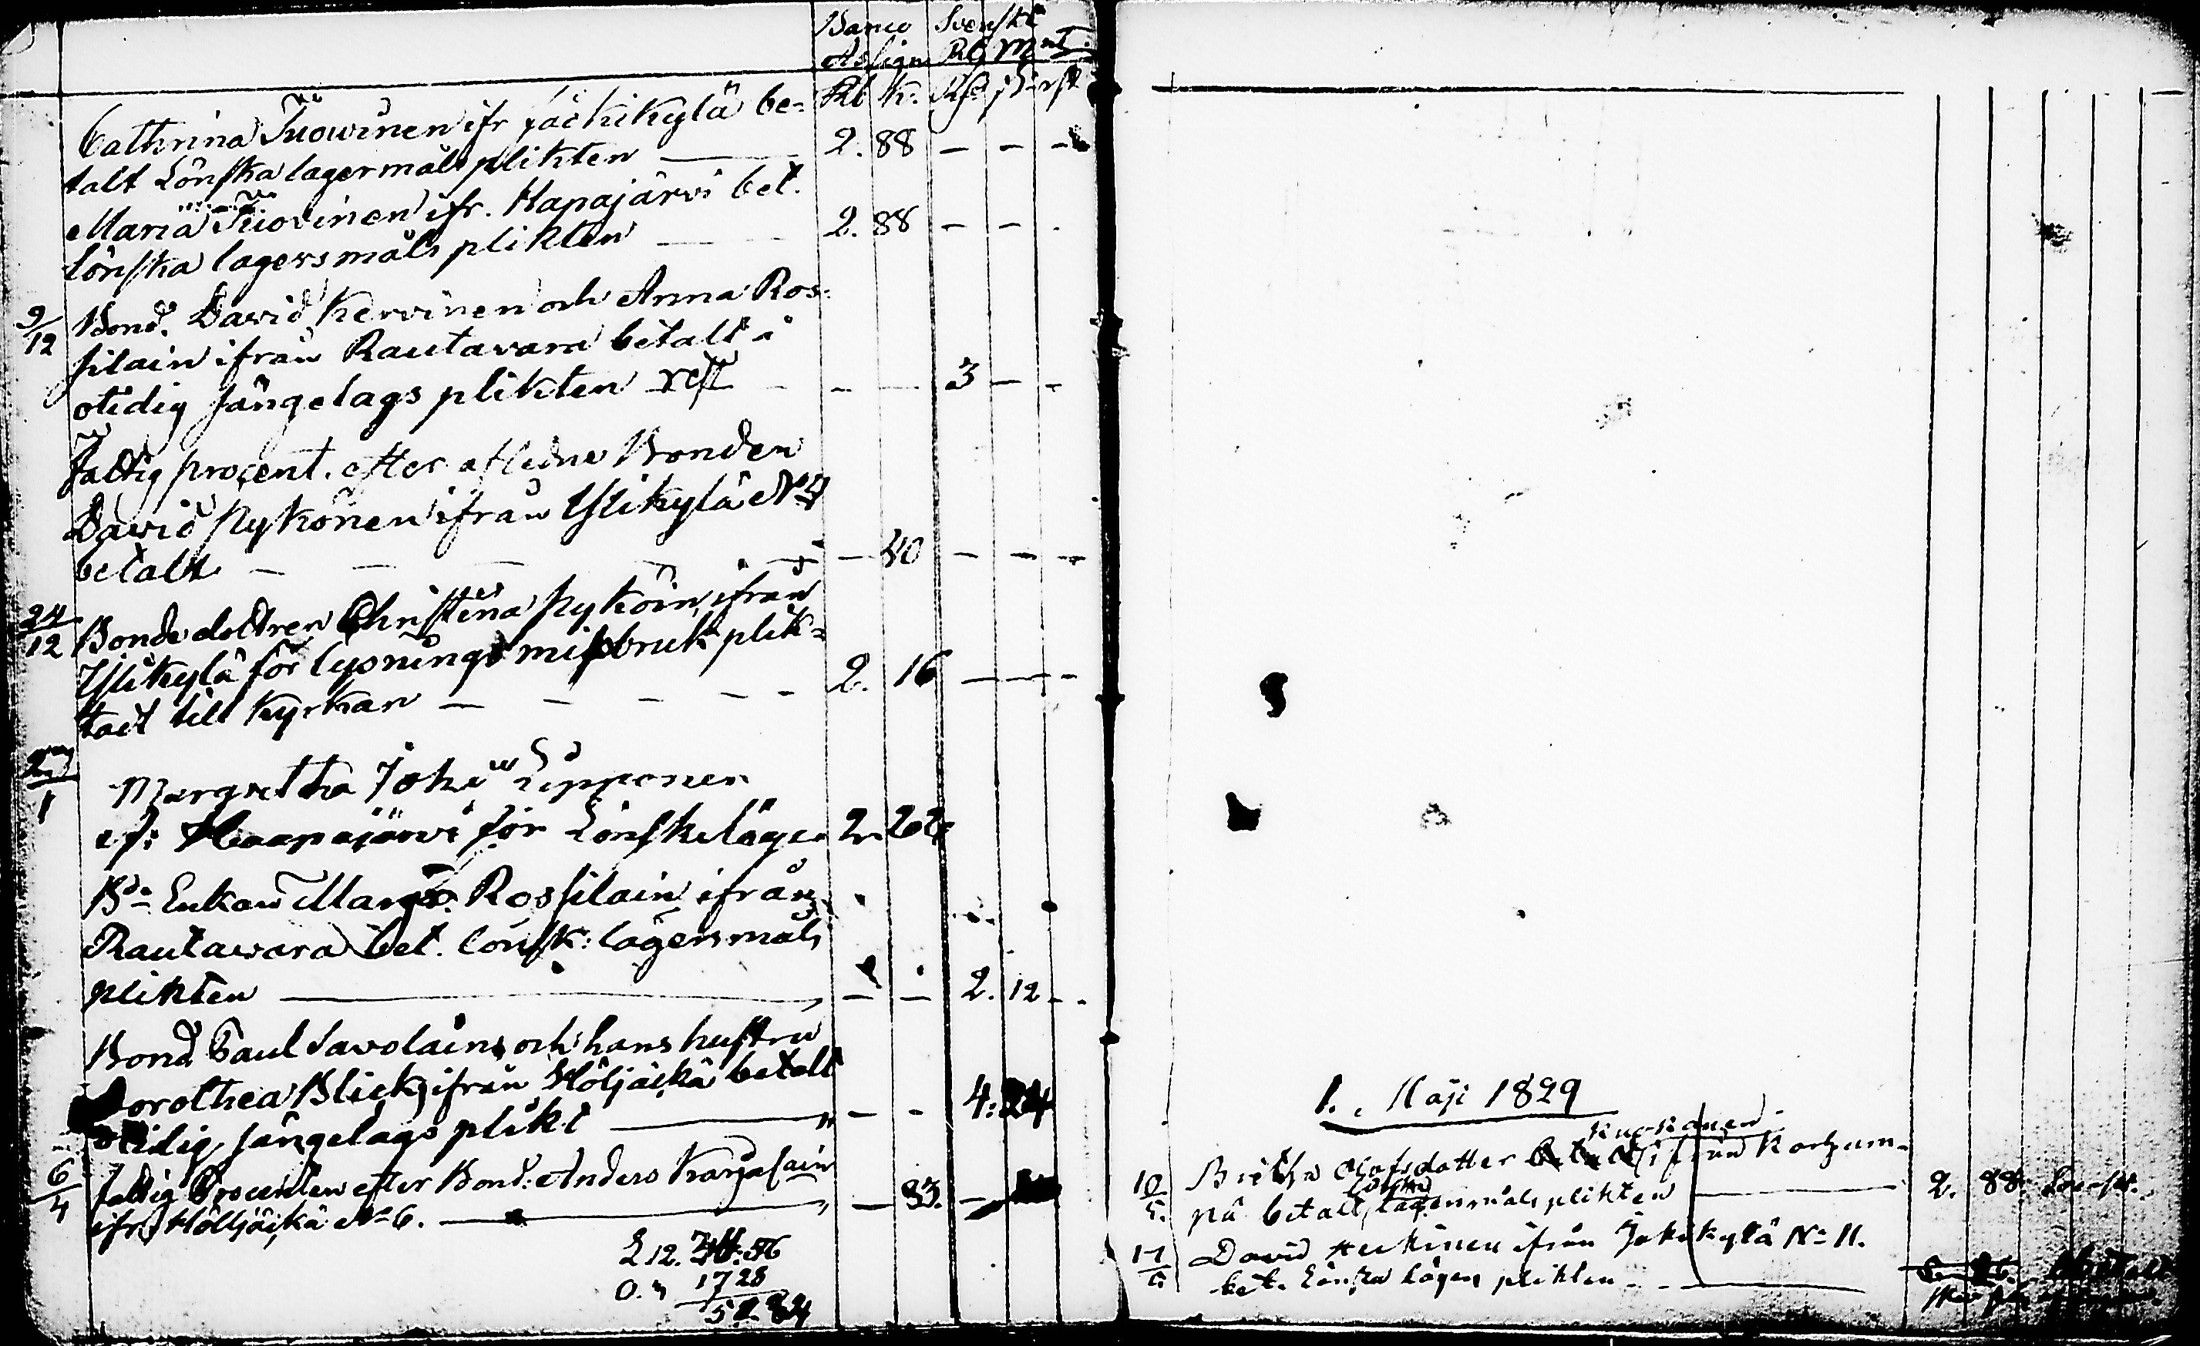 Banco Svenskt
Assign Rg Mnt
Rb K. Rs ß rst
Cathrina Tuowinen ifr Jächikylä be- 2. 88 - - -
talt Lönska lagermåls plikten
Maria Tuovinen ifr. Hapajärvi bet. 2. 88 - - -
Lönska lagersmåls plikten
9/12 Bond. David Kervinen och Anna Ros-
silain ifrån Rautavara betalt i
otidig sängelags plikten rest - - 3 - -
Fattig procent. efter aflidne Bonden
David Rykönen ifrån Ylikylä No 4
betalt - 40 - - -
24/12 Bondedottren Christina Ryköin, ifrån
Ylikylä för lysnings missbruk plik-
tat till Kyrkan 2. 16 - - -
27/1 Margretha Joh: Lipponen
if: Haapajärvi för Lönskeläger 2. 26
Bde Enkan Marg. Rossilain ifrån
Rautawara bet. lönsk: lägersmåls
plikten - - 2. 12 - -
Bond Paul Savolain och hans hustru
Dorothea Blick, ifrån Höljäkä betalt
otidig sängelags plikt - - 4: 24
6/4 Fattig Procenten efter Bond: Anders Karjalain
ifr. Hölljäkä No 6. - 83. -
S 12. 56
0. " 17 28
52 84
1. Maji 1829
10/5. Britha Olofsdotter Kuokanen ifrån Karhum-
på betalt, Lönska lagersmåls plikten 2. 88.
17/5 David ifrån Jokikylä No 11.
bet. Lönska Lägers plikten